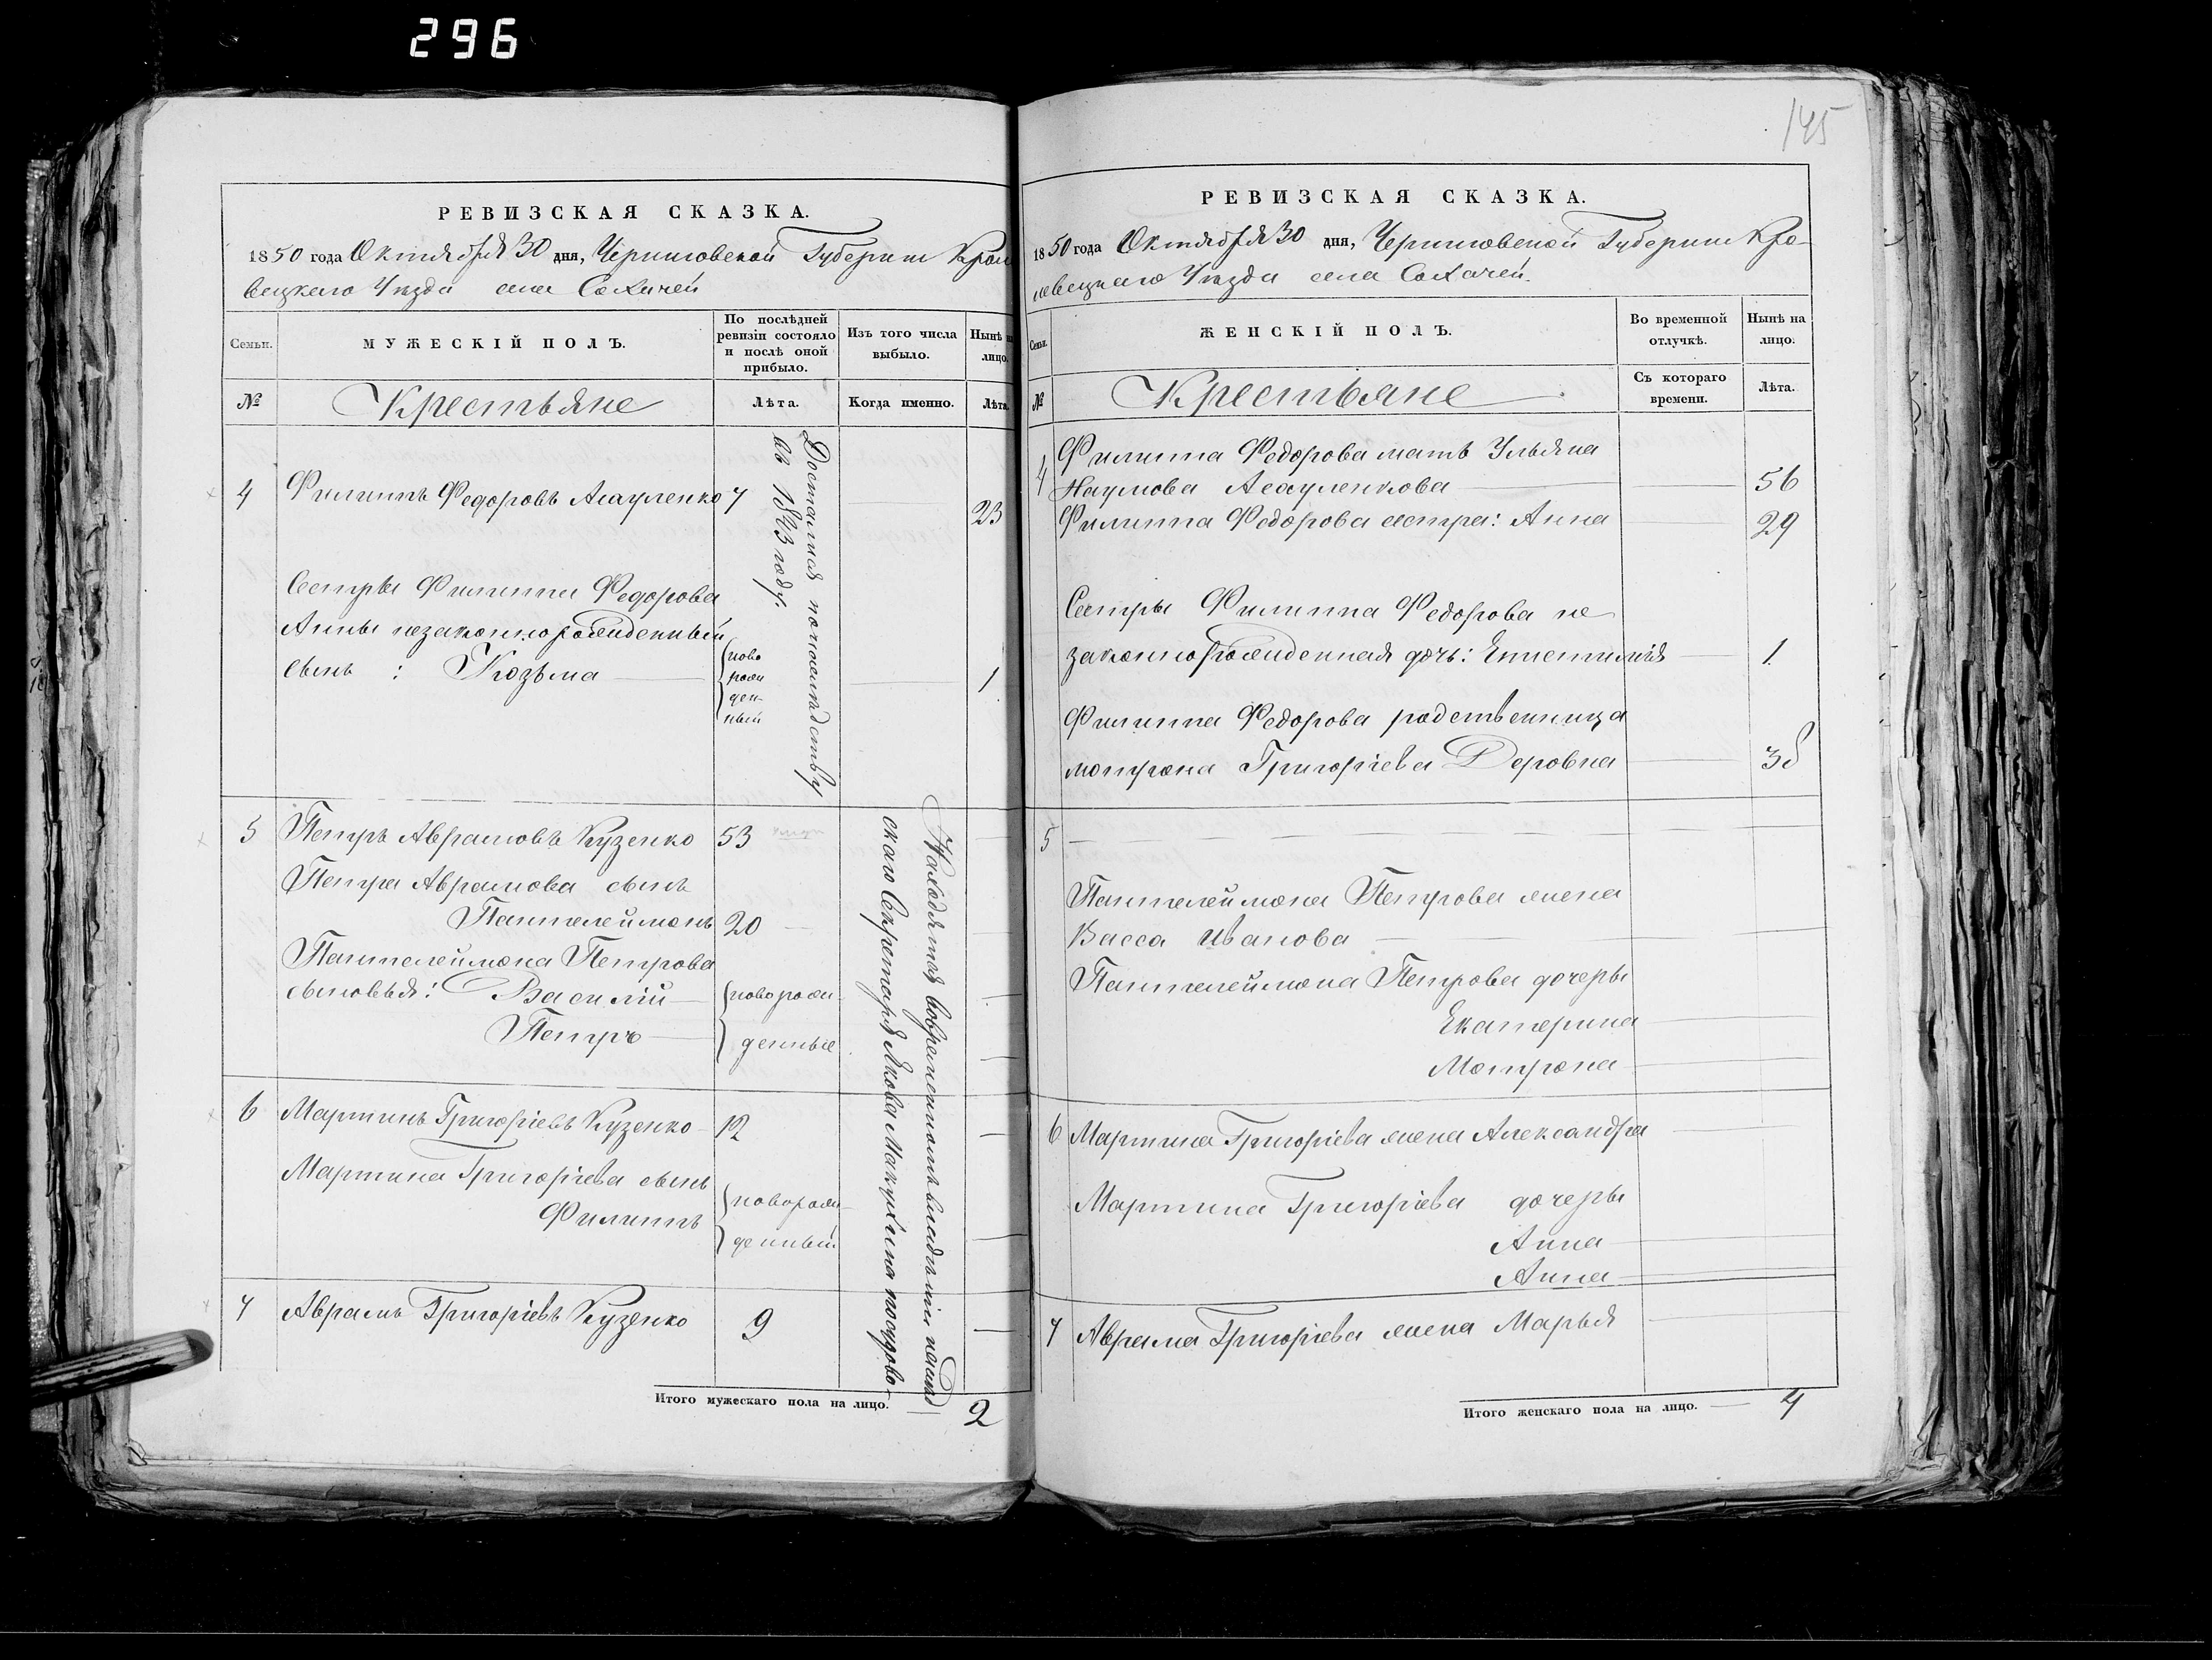 296
145
РЕВИЗСКАЯ СКАЗКА.
1850 года Октября 30 дня, Черниговской Губернии Кроле
вецкаго Уезда села Сохачей
Семьи.
МУЖЕСКІЙ ПОЛЪ.
По послѣдней
ревизіи состояло
и послѣ оной
прибыло.
Изъ того числа
выбыло.
Нынѣ на
лицо.
№
Крестьяне
Лѣта.
Когда именно.
Лѣта.
4 Филиппъ Федоровъ Асауленко 7 23
Достались по наследству
въ 1843 году.
Сестры Филиппа Федорова
Анны незаконнорожденный
сынъ : Козьма 1
ново
рож
ден-
ный
5 Петръ Аврамовъ Кузенко 53
Петра Аврамова сынъ
Пантелеймонъ 20
Пантелеймона Петрова
сыновья: Василій новорож-
Петръ денные
Находятся во временномъ владѣніи надво
скаго Секретаря Якова Макухина
6 Мартинъ Григоріевъ Кузенко 12
Мартина Григоріева сынъ
Филиппъ
новорож-
денный
7 Аврамъ Григоріевъ Кузенко 9
Итого мужескаго пола на лицо. 2
РЕВИЗСКАЯ СКАЗКА.
1850 года Октября 30 дня, Черниговской Губернии Кро-
левецкаго Уезда села Сохачей.
Семьи.
ЖЕНСКІЙ ПОЛЪ.
Во временной
отлучкѣ.
Нынѣ на
лицо.
№
Крестьяне
Съ котораго
времени.
Лѣта.
4 Филиппа Федорова мать Ульяна
Наумова Асауленкова 56
Филиппа Федорова сестра: Анна 29
Сестры Филиппа Федорова не
законнорожденная дочь: Епистимія 1.
Филиппа Федорова родственница
мотрона Григоріева Деровна 38
5
Пантелеймона Петрова жена
Васса Иванова
Пантелеймона Петрова дочеры
Екатерина
Мотрона
6 Мартина Григоріева жена Александра
Мартина Григоріева дочеры
Анна
Анна
7 Аврама Григоріева жена Марья
Итого женскаго пола на лицо. 4